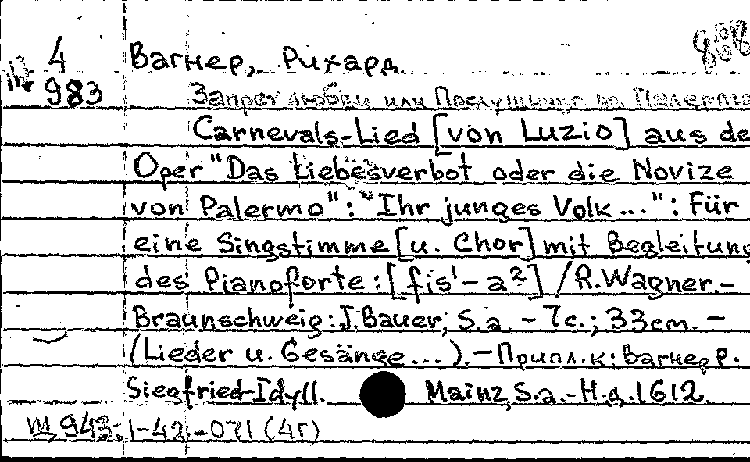 4 Вагнер, Рихард 888
983 Запрет любви или Послушница из Палермо
Carnevals-Lied [von Luzio] aus de
Oper "Das Liebesverbot oder die Novize
von Palermo": "Ihr junges Volk...": Für
eine Singstimme [u. Chor] mit Begleitung
des Pianoforte: [fis¹-a²] / R. Wagner.-
Braunschweig: J. Bauer, S.a. - 7 c.; 33cm. -
(Lieder u. Gesänge...). - Припл. к: Вагнер Р.
Siegfried-Idyll. Mainz, S.a. - Н.д. 1612.
943: 1-42-071 (4г)